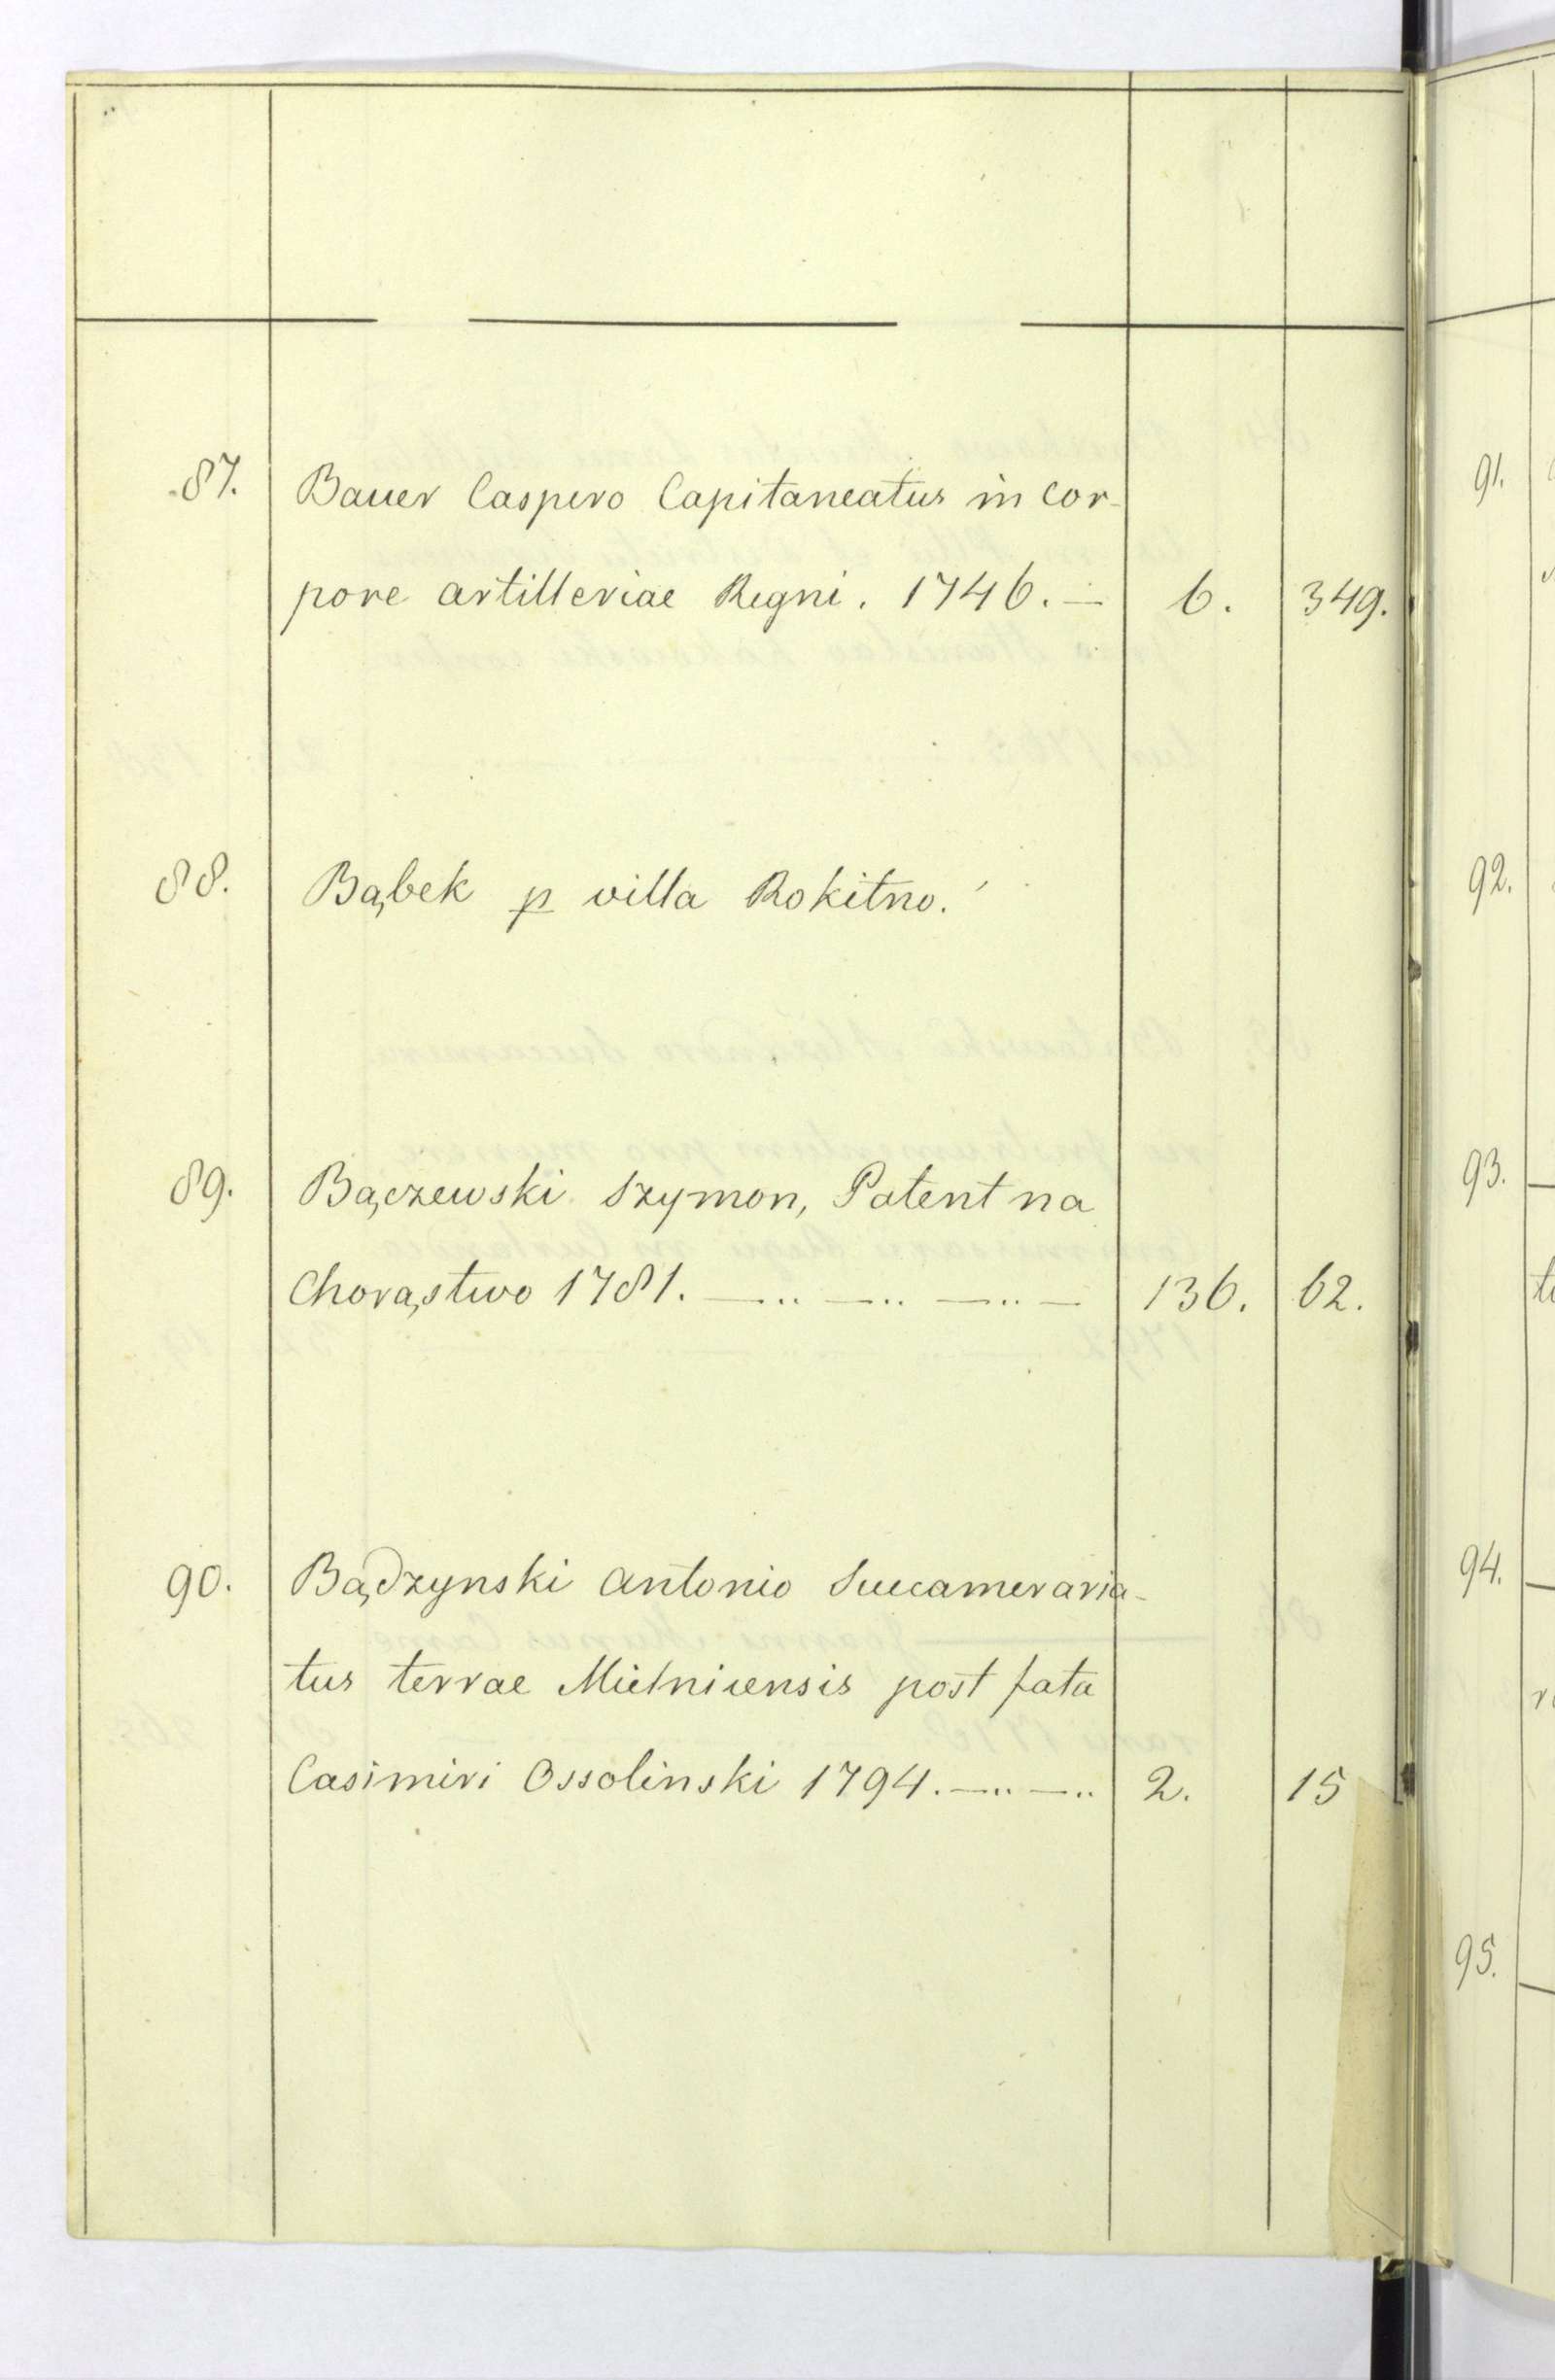 87. Bauer Caspero Capitaneatus in cor-
pore artilleriae Regni. 1746. — 6. 349.
88. Bąbek p villa Rokitno.
89. Bączewski Szymon, Patent na
Chorąstwo 1781. —..—..—..— 136. 62.
90. Bądzynski Antonio Succameraria-
tus terrae Mielnicensis post fata
Casimiri Ossolinski 1794. —..—.. 2. 15
91.
92.
93.
94.
95.